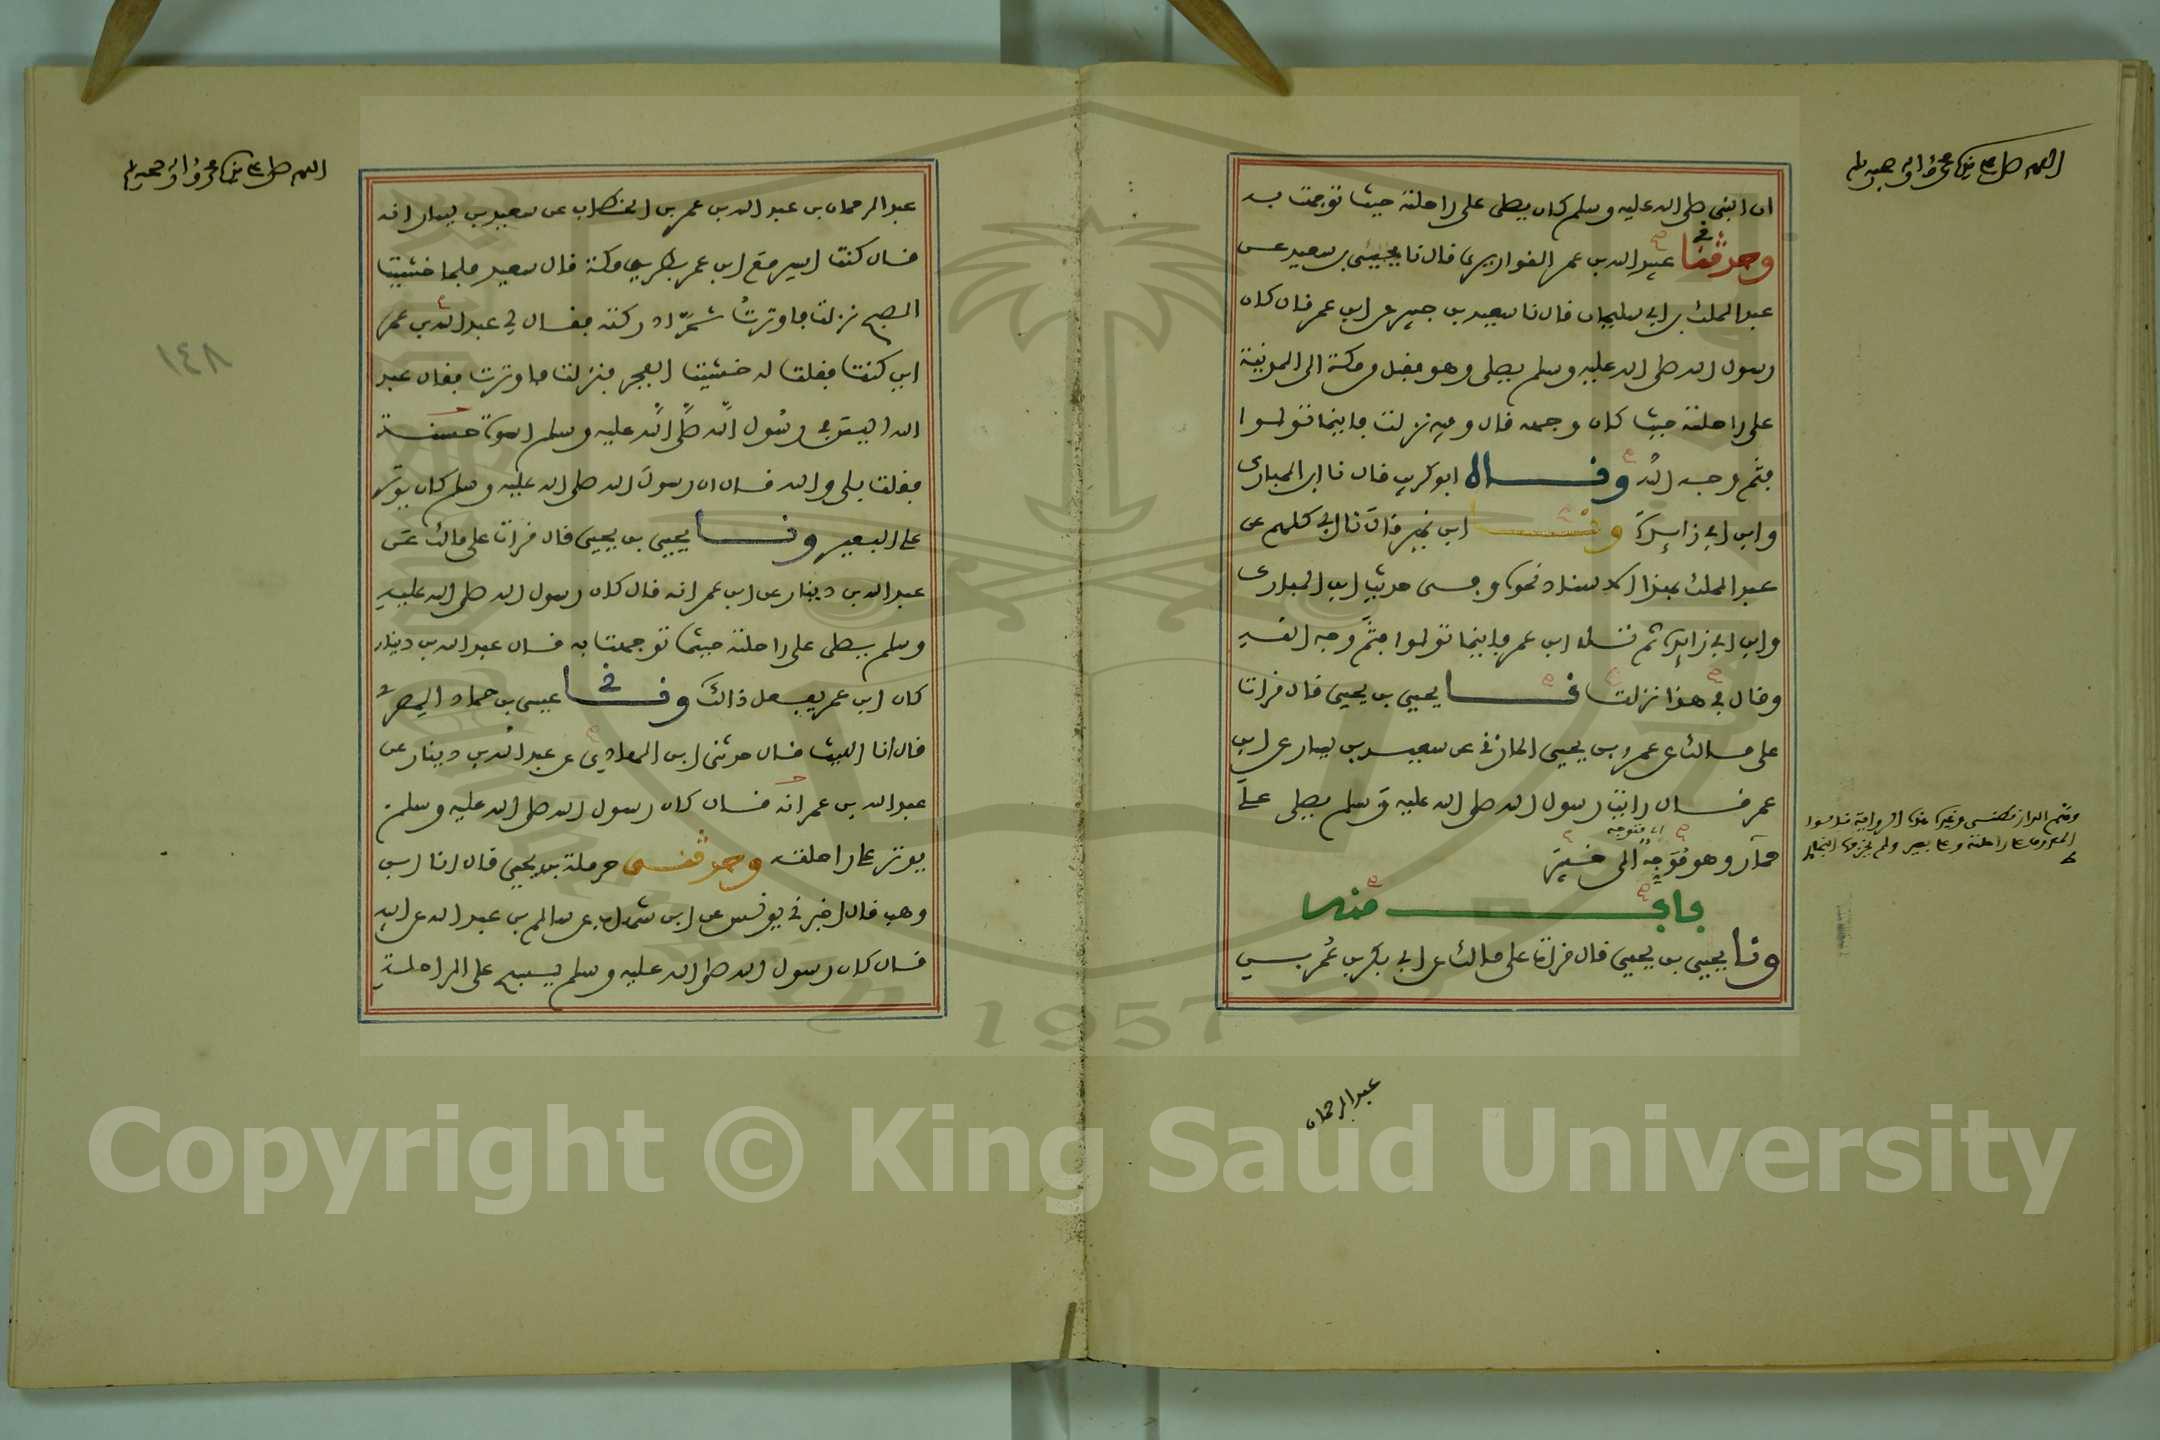 اللهم صل على سيدنا محمد وآله وصحبه وسلم
ان النبي صلى الله عليه وسلم كان يصلي على راحلته حيث توجهت به
وحدثني عبيد الله بن عمر القواريري قال نا يحيى بن سعيد عن
عبد الملك بن ابي سليمان قال نا سعيد بن جبير عن ابن عمر قال كان
رسول الله صلى الله عليه وسلم يصلي وهو مقبل من مكة الى المدينة
على راحلته حيث كان وجهه قال وفيه نزلت فاينما تولوا
فثم وجه الله وناه ابو كريب قال نا ابن المبارك
وابن ابي زايدة ونا ابن نمير قال نا ابي كلهم عن
عبد الملك بهذا الاسناد نحوه وفي حديث ابن المبارك
وابن ابي زايدة ثم تلا ابن عمر فاينما تولوا فثم وجه الله
وقال في هذا نزلت نا يحيى بن يحيى قال قرات
على مالك عن عمرو بن يحيى المازني عن سعيد بن يسار عن ابن
عمر قال رايت رسول الله صلى الله عليه وسلم يصلي على
حمار وهو موجه الى خيبر
باب منه
ونا يحيى بن يحيى قال قرات على مالك عن ابي بكر بن عمر بن
عبد الرحمان
اللهم صل على سيدنا محمد وآله وصحبه وسلم
١٤٨
عبد الرحمان بن عبد الله بن عمر بن الخطاب عن سعيد بن يسار انه
قال كنت اسير مع ابن عمر بطريق مكة قال سعيد فلما خشيت
الصبح نزلت فاوترت ثم ادركته فقال لي عبد الله بن عمر
اين كنت فقلت له خشيت الفجر فنزلت فاوترت فقال عبد
الله اليس لك في رسول الله صلى الله عليه وسلم اسوة حسنة
فقلت بلى والله قال ان رسول الله صلى الله عليه وسلم كان يوتر
على البعير ونا يحيى بن يحيى قال قرات على مالك عن
عبد الله بن دينار عن ابن عمر انه قال كان رسول الله صلى الله عليه
وسلم يصلي على راحلته حيثما توجهت به قال عبد الله بن دينار
كان ابن عمر يفعل ذالك وني عيسى بن حماد المصري
قال انا الليث قال حدثني ابن الهادي عن عبد الله بن دينار عن
عبد الله بن عمر انه قال كان رسول الله صلى الله عليه وسلم
يوتر على راحلته وحدثني حرملة بن يحيى قال انا ابن
وهب قال اخبرني يونس عن ابن شهاب عن سالم بن عبد الله عن ابيه
قال كان رسول الله صلى الله عليه وسلم يسبح على الراحلة
Copyright © King Saud University
1957